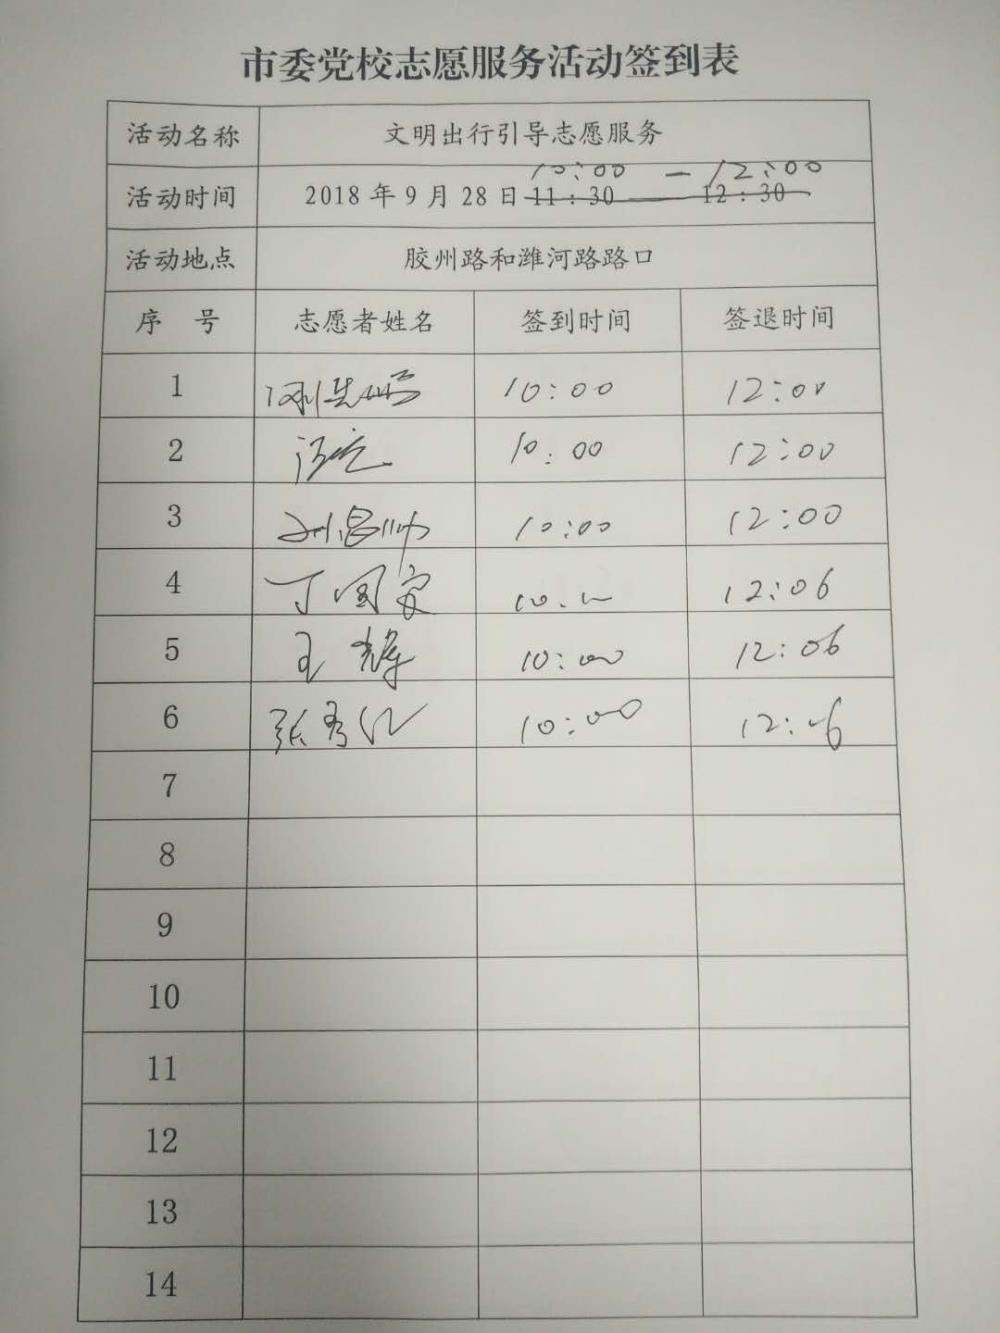 市委党校志愿服务活动签到表
活动名称 文明出行引导志愿服务
10:00 — 12:00
活动时间 2018年9月28日 11:30 —— 12:30
活动地点 胶州路和潍河路路口
序 号 志愿者姓名 签到时间 签退时间
1 10:00 12:00
2 10:00 12:00
3 刘昌帅 10:00 12:00
4 丁国家 12:06
5 王辉 10:00 12:06
6 10:00 12:06
7
8
9
10
11
12
13
14